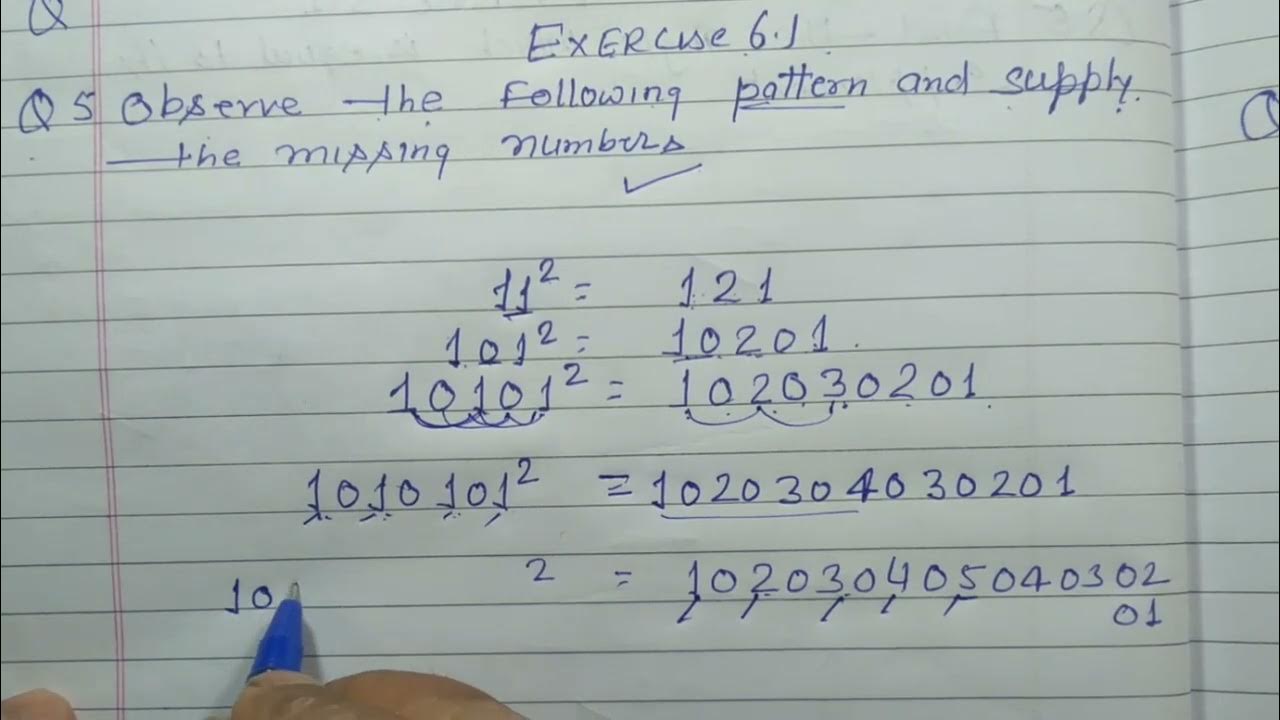 Q
Exercise 6.1
Q 5 Observe the following pattern and supply.
the missing numbers
11² = 121
101² = 10201.
10101² = 102030201.
1010101² = 1020304030201
10 ² = 10203040504030201
Q